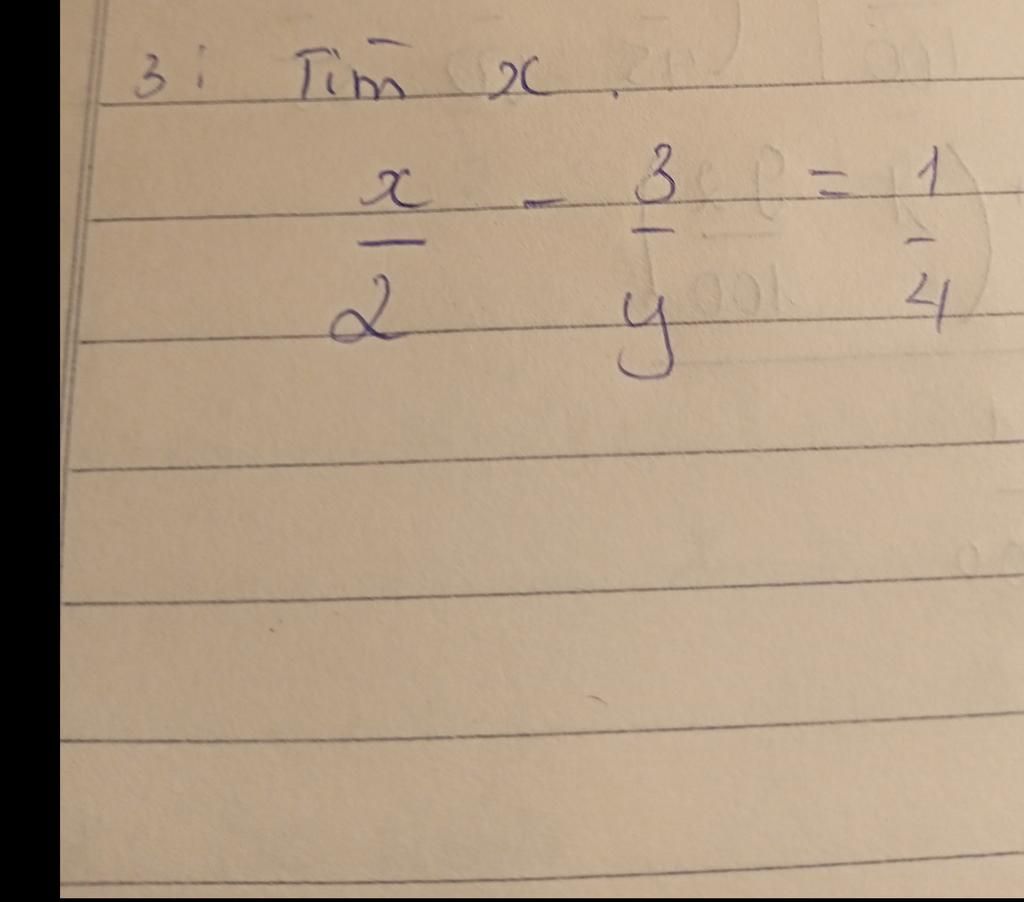 3: Tìm x.
x/2 - 3/y = 1/4